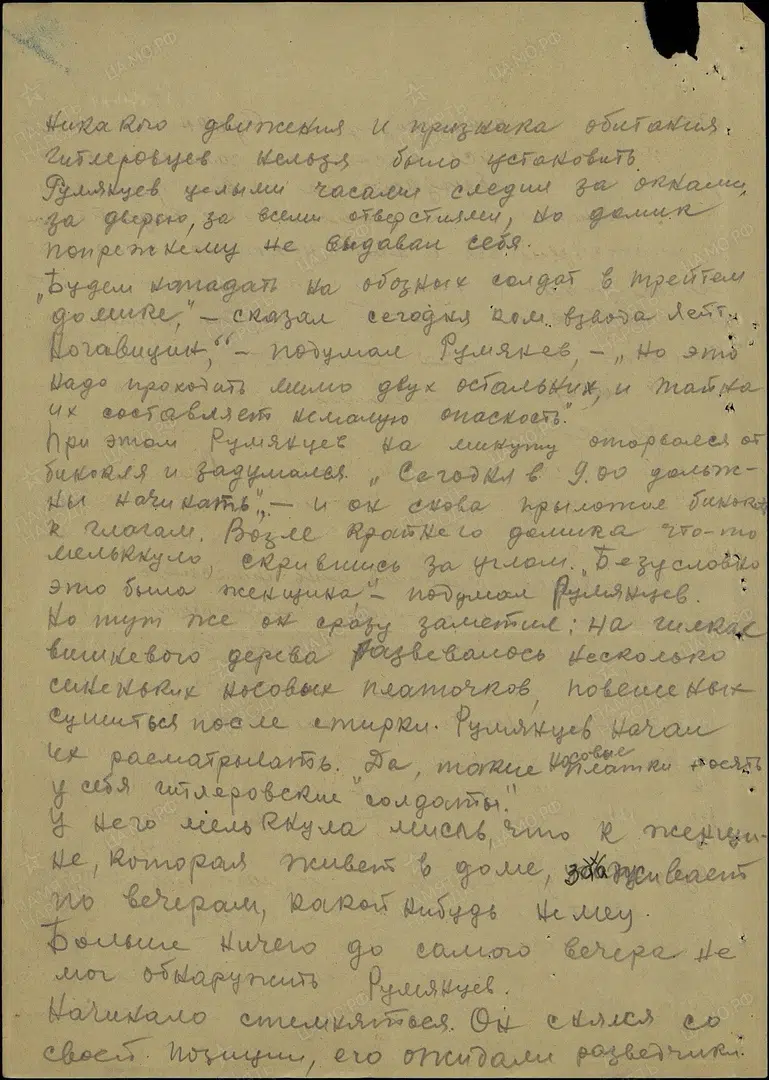 Никакого движения и признака обитания
гитлеровцев нельзя было установить.
Румянцев целыми часами следил за окнами,
за дверью, за всеми отверстиями, но домик
попрежнему не выдавал себя.
„Будем нападать на обозных солдат в третьем
домике," – сказал сегодня ком. взвода лейт.
Ногавицин," – подумал Румянцев, – „Но это
надо проходить мимо двух остальних, и тайна
их составляет немалую опасность".
При этом Румянцев на минуту оторвался от
бинокля и задумался. „Сегодня в 9.00 долж-
ны начинать", – и он снова приложил бинокль
к глазам. Возле крайнего домика что-то
мелькнуло, скрившись за углом. „Безусловно
это была женщина" – подумал Румянцев.
Но тут же он сразу заметил: на гилках
вишневого дерева развевалось несколько
синеньких носовых платочков, повешеных
сушиться после стирки. Румянцев начал
их расматривать. Да, такие носовые платки носять
у себя гитлеровские "солдаты".
У него мелькнула мисль, что к женщи-
не, которая живет в доме, захаживает
по вечерам, какой нибудь немец.
Больше ничего до самого вечера не
мог обнаружить Румянцев.
Начинало стемняться. Он снялся со
своей позиции, его ожидали разведчики.
ЦАМО.РФ